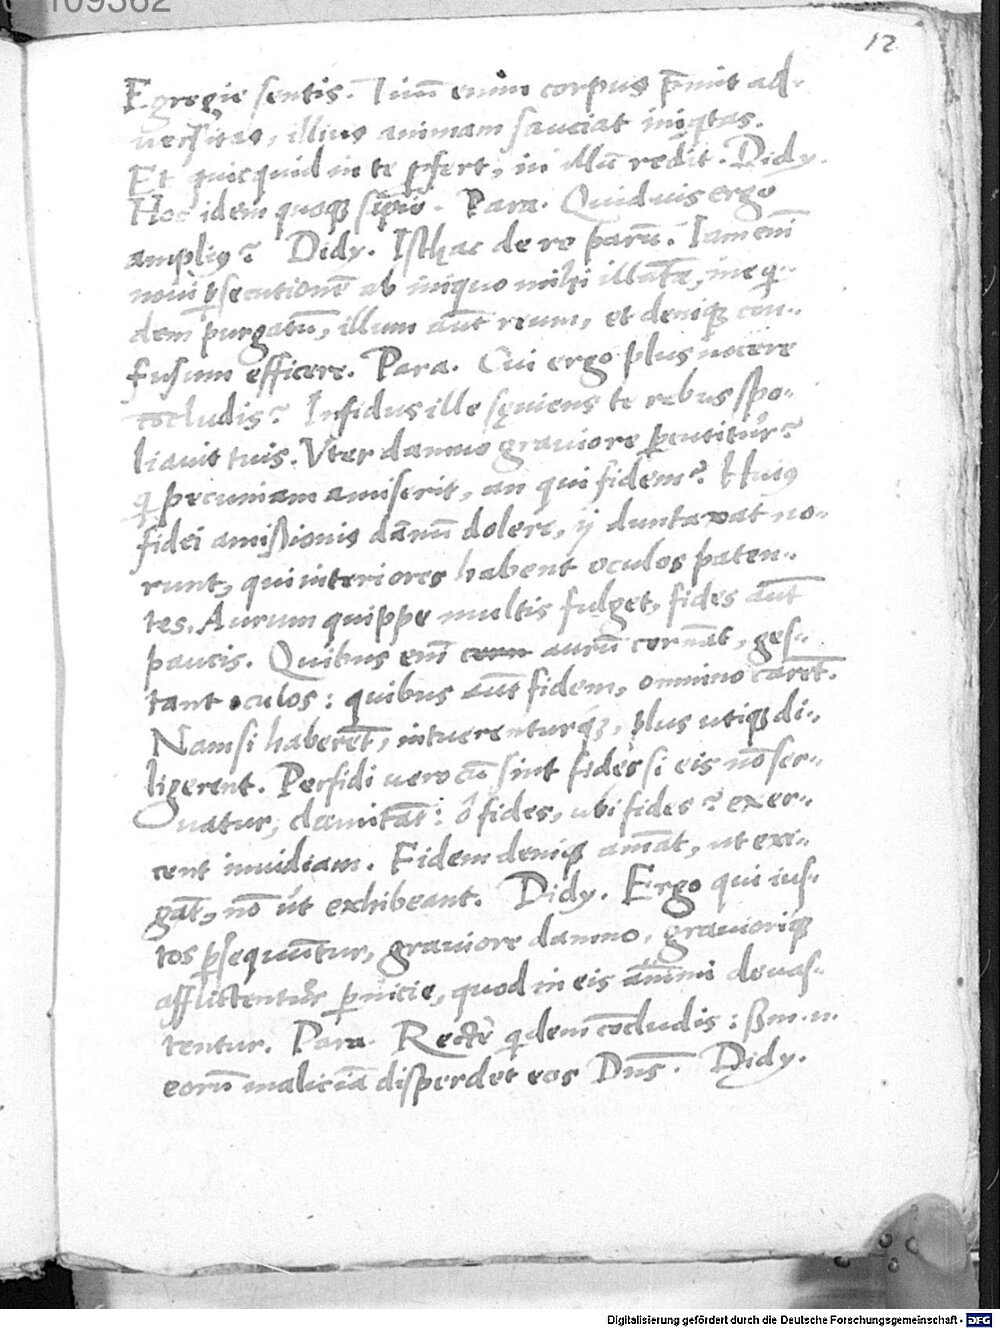 109382
12
Egregie sentis. Tuū enim corpus p̄mit ad-
uersitas, illius animam sauciat iniq̇tas.
Et quicquid in te ꝓfert, in illū redit. Didy.
Hoc idem quoqꝫ sẽpio. Para. Quid uis ergo
ampliꝰ? Didy. Isthac de re parū. Iam eni̅
noui ꝑsecutionē ab iniquo mihi illatā, me q̇-
dem purgatū, illum aūt reum, et deniqꝫ con-
fusum efficere. Para. Cui ergo plus nocere
cōcludis? Infidus ille sęuiens te rebus spo-
liauit tuis. Vter damno grauiore ꝑcutitur?
q̇ pecuniam amiserit, an qui fidem? Huiꝰ
fidei amißionis dānū dolere, ij duntaxat no-
runt, qui interiores habent oculos paten-
tes. Aurum quippe multis fulget, fides aūt
paucis. Quibus eni̅ aurū cernāt, ges-
tant oculos: quibus aūt fidem, omnino carēt.
Nam si haberēt, intuerenturqꝫ, plus utiqꝫ di-
ligerent. Perfidi uero cū sint fides si eis nō ser-
uatur, clamitāt: ô fides, ubi fides? exer-
cent inuidiam. Fidem deniqꝫ amāt, ut exi-
gāt, nō ut exhibeant. Didy. Ergo qui ius-
tos ꝑsequūtur, grauiore damno, grauioriqꝫ
afflictentur ꝑnicie, quod in eis animi deuas-
tentur. Para. Recte q̇dem cōcludis:
eorū maliciā disperdet eos Dn̄s. Didy.
Digitalisierung gefördert durch die Deutsche Forschungsgemeinschaft - DFG